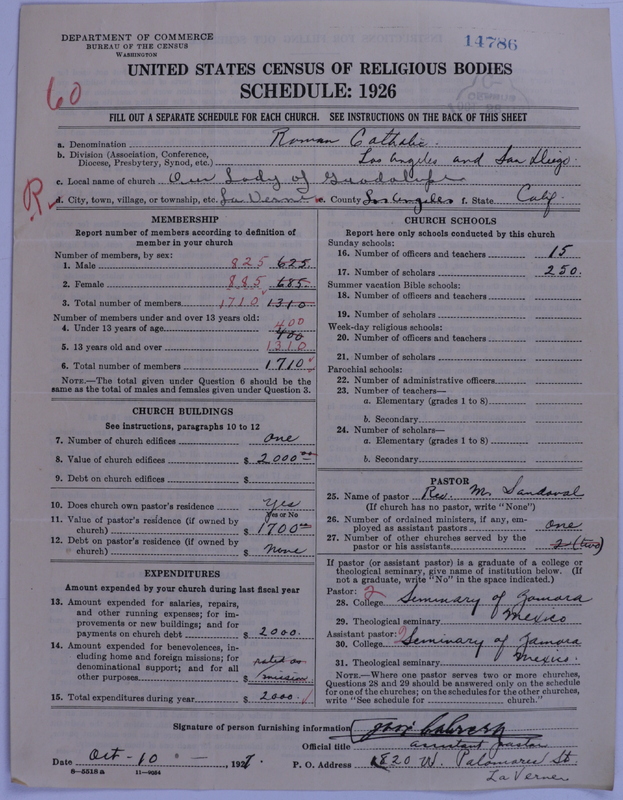 DEPARTMENT OF COMMERCE
BUREAU OF THE CENSUS
WASHINGTON
14786
UNITED STATES CENSUS OF RELIGIOUS BODIES
SCHEDULE: 1926
60
FILL OUT A SEPARATE SCHEDULE FOR EACH CHURCH. SEE INSTRUCTIONS ON THE BACK OF THIS SHEET
a. Denomination Roman Catholic.
b. Division (Association, Conference, Diocese, Presbytery, Synod, etc.) Los Angeles and San Diego.
c. Local name of church Our Lady of Guadalupe
R.
d. City, town, village, or township, etc. La Verne e. County Los Angeles f. State Calif.
MEMBERSHIP
Report number of members according to definition of member in your church
Number of members, by sex:
1. Male 825 625
2. Female 885 685
3. Total number of members 1710 1310
Number of members under and over 13 years old:
4. Under 13 years of age 400 400
5. 13 years old and over 1310
6. Total number of members 1710
NOTE.—The total given under Question 6 should be the same as the total of males and females given under Question 3.
CHURCH BUILDINGS
See instructions, paragraphs 10 to 12
7. Number of church edifices one
8. Value of church edifices $ 2000 00
9. Debt on church edifices $
10. Does church own pastor's residence yes
Yes or No
11. Value of pastor's residence (if owned by church) $ 1700 00
12. Debt on pastor's residence (if owned by church) $ none
EXPENDITURES
Amount expended by your church during last fiscal year
13. Amount expended for salaries, repairs, and other running expenses; for improvements or new buildings; and for payments on church debt $ 2000.
14. Amount expended for benevolences, including home and foreign missions; for denominational support; and for all other purposes $ rated as mission
15. Total expenditures during year $ 2000.
CHURCH SCHOOLS
Report here only schools conducted by this church
Sunday schools:
16. Number of officers and teachers 15
17. Number of scholars 250
Summer vacation Bible schools:
18. Number of officers and teachers
19. Number of scholars
Week-day religious schools:
20. Number of officers and teachers
21. Number of scholars
Parochial schools:
22. Number of administrative officers
23. Number of teachers—
a. Elementary (grades 1 to 8)
b. Secondary
24. Number of scholars—
a. Elementary (grades 1 to 8)
b. Secondary
PASTOR
25. Name of pastor Rev. M. Sandoval
(If church has no pastor, write "None")
26. Number of ordained ministers, if any, employed as assistant pastors one
27. Number of other churches served by the pastor or his assistants 2 (two)
If pastor (or assistant pastor) is a graduate of a college or theological seminary, give name of institution below. (If not a graduate, write "No" in the space indicated.)
Pastor: 2
28. College Seminary of Zamora
29. Theological seminary Mexico
Assistant pastor: 2
30. College Seminary of Zamora
31. Theological seminary Mexico.
NOTE.—Where one pastor serves two or more churches, Questions 28 and 29 should be answered only on the schedule for one of the churches; on the schedules for the other churches, write "See schedule for church."
Signature of person furnishing information
Official title assistant pastor
Date Oct - 10 - , 1927. P. O. Address 1820 W. Palomares St.
La Verne
8—5518 a 11—9034